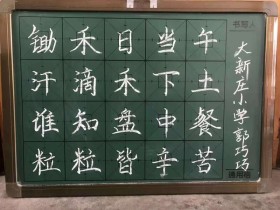 锄禾日当午
汗滴禾下土
谁知盘中餐
粒粒皆辛苦
大新庄小学 郭巧